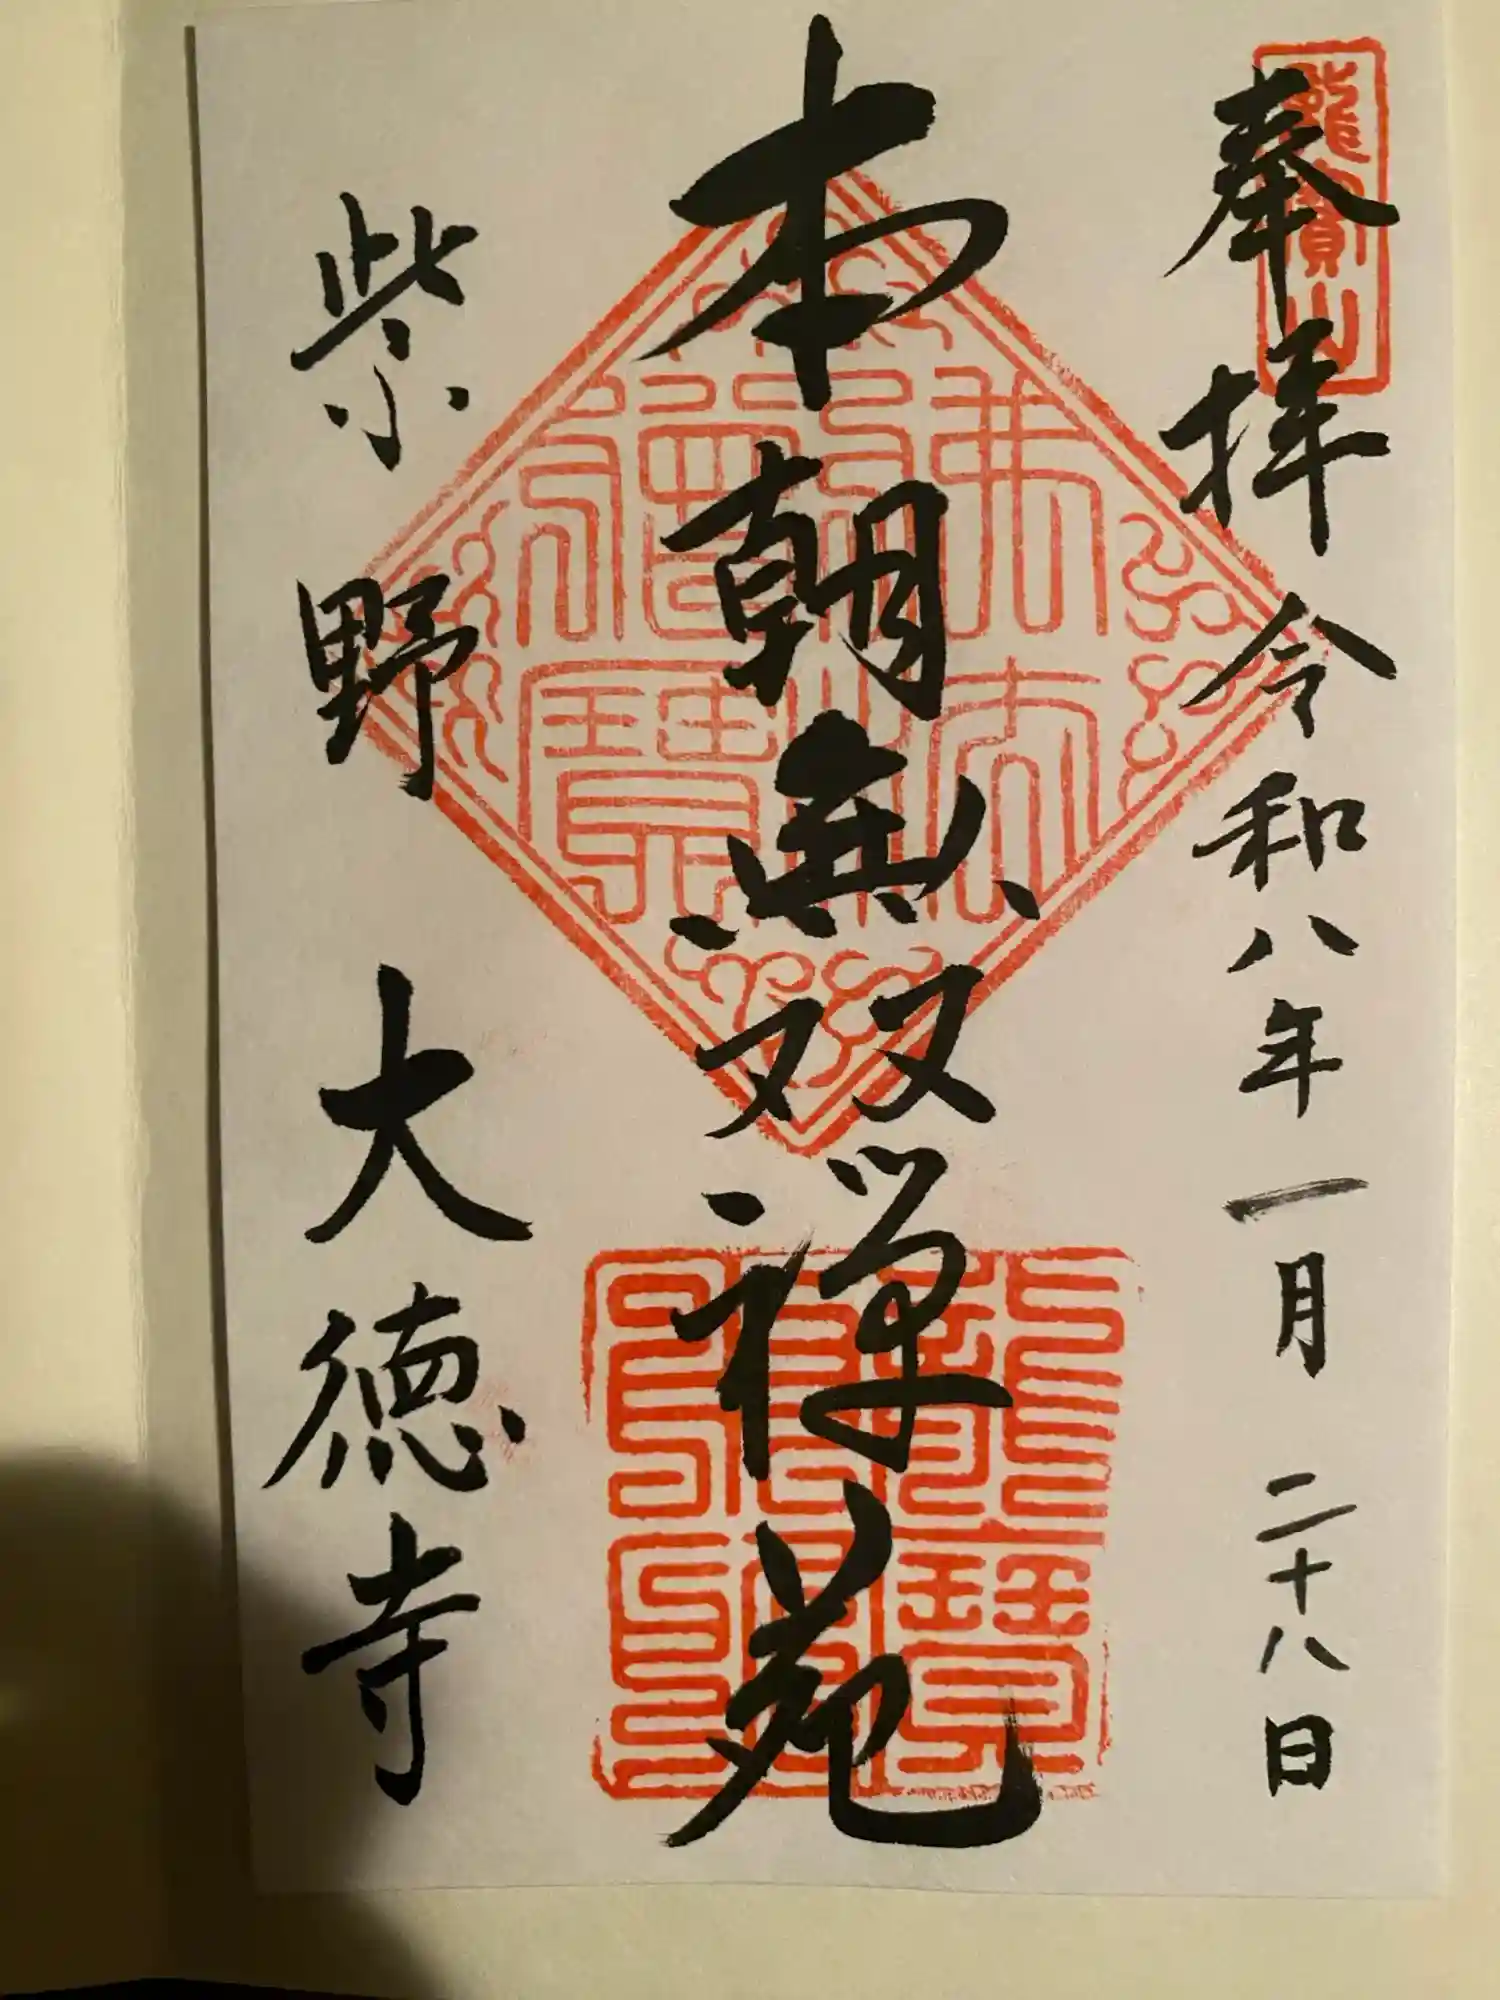 奉拝 令和八年一月二十八日
龍寳山
本朝無双禅苑
佛法僧寳
紫野 大徳寺